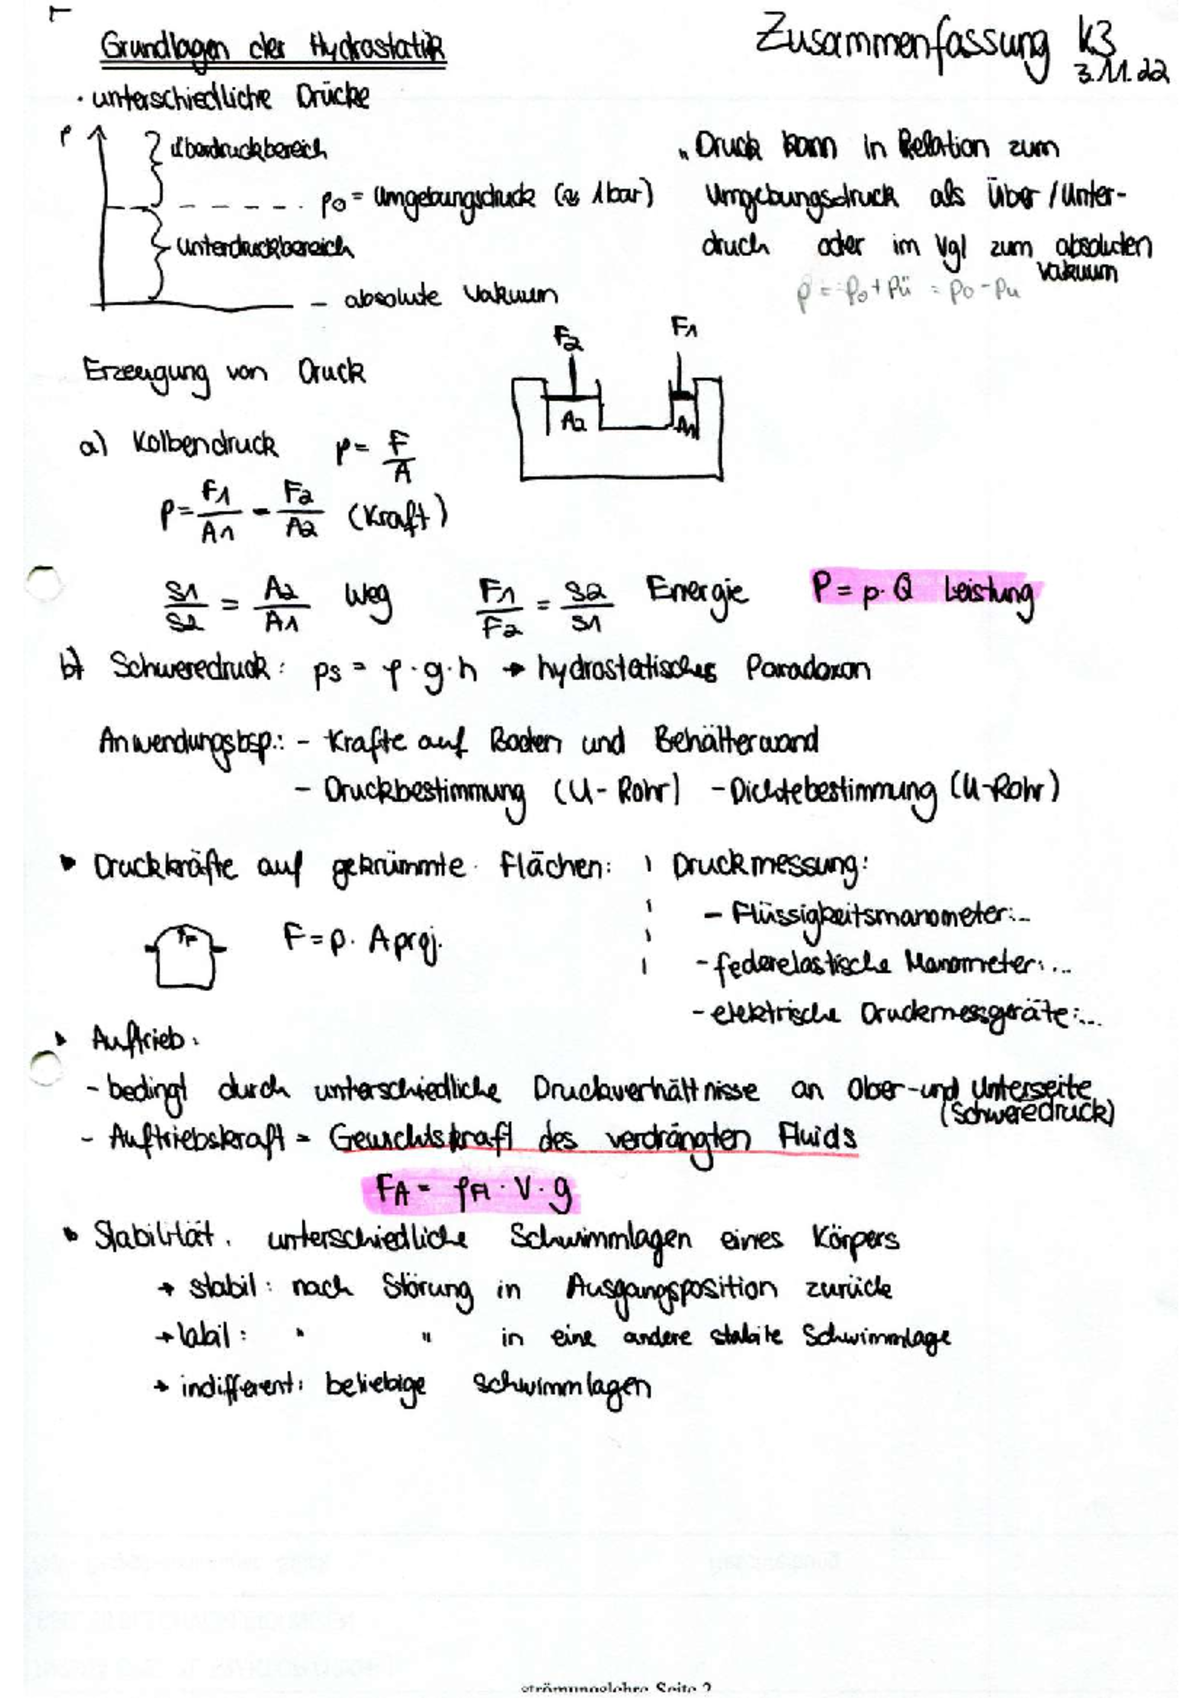 Grundlagen der Hydrostatik
Zusammenfassung K3
3.11.22
· unterschiedliche Drücke
p
Überdruckbereich
p0 = Umgebungsdruck (≈ 1bar)
Unterdruckbereich
– absolute Vakuum
" Druck kann in Relation zum
Umgebungsdruck als Über/Unter-
druch oder im Vgl zum absoluten
Vakuum
p = p0 + pü = p0 - pu
F2 F1
A2 A1
Erzeugung von Druck
a) Kolbendruck p = F/A
p = F1/A1 = F2/A2 (Kraft)
S1/S2 = A2/A1 Weg F1/F2 = S2/S1 Energie P = p · Q Leistung
b) Schweredruck: ps = ρ · g · h → hydrostatisches Paradoxon
Anwendungsbsp.: - Krafte auf Boden und Behälterwand
- Druckbestimmung (U-Rohr) - Dichtebestimmung (U-Rohr)
▸ Druckkräfte auf gekrümmte Flächen:
F = p · Aproj.
Druckmessung:
- Flüssigkeitsmanometer:...
- federelastische Manometer:...
- elektrische Druckmessgeräte:...
▸ Auftrieb:
- bedingt durch unterschiedliche Druckverhältnisse an Ober- und Unterseite
(Schweredruck)
- Auftriebskraft = Gewichtskraft des verdrängten Fluids
FA = ρFl · V · g
▸ Stabilität: unterschiedliche Schwimmlagen eines Körpers
→ stabil: nach Störung in Ausgangsposition zurück
→ labil: " " in eine andere stabile Schwimmlage
→ indifferent: beliebige Schwimmlagen
strömungslehre Seite 2